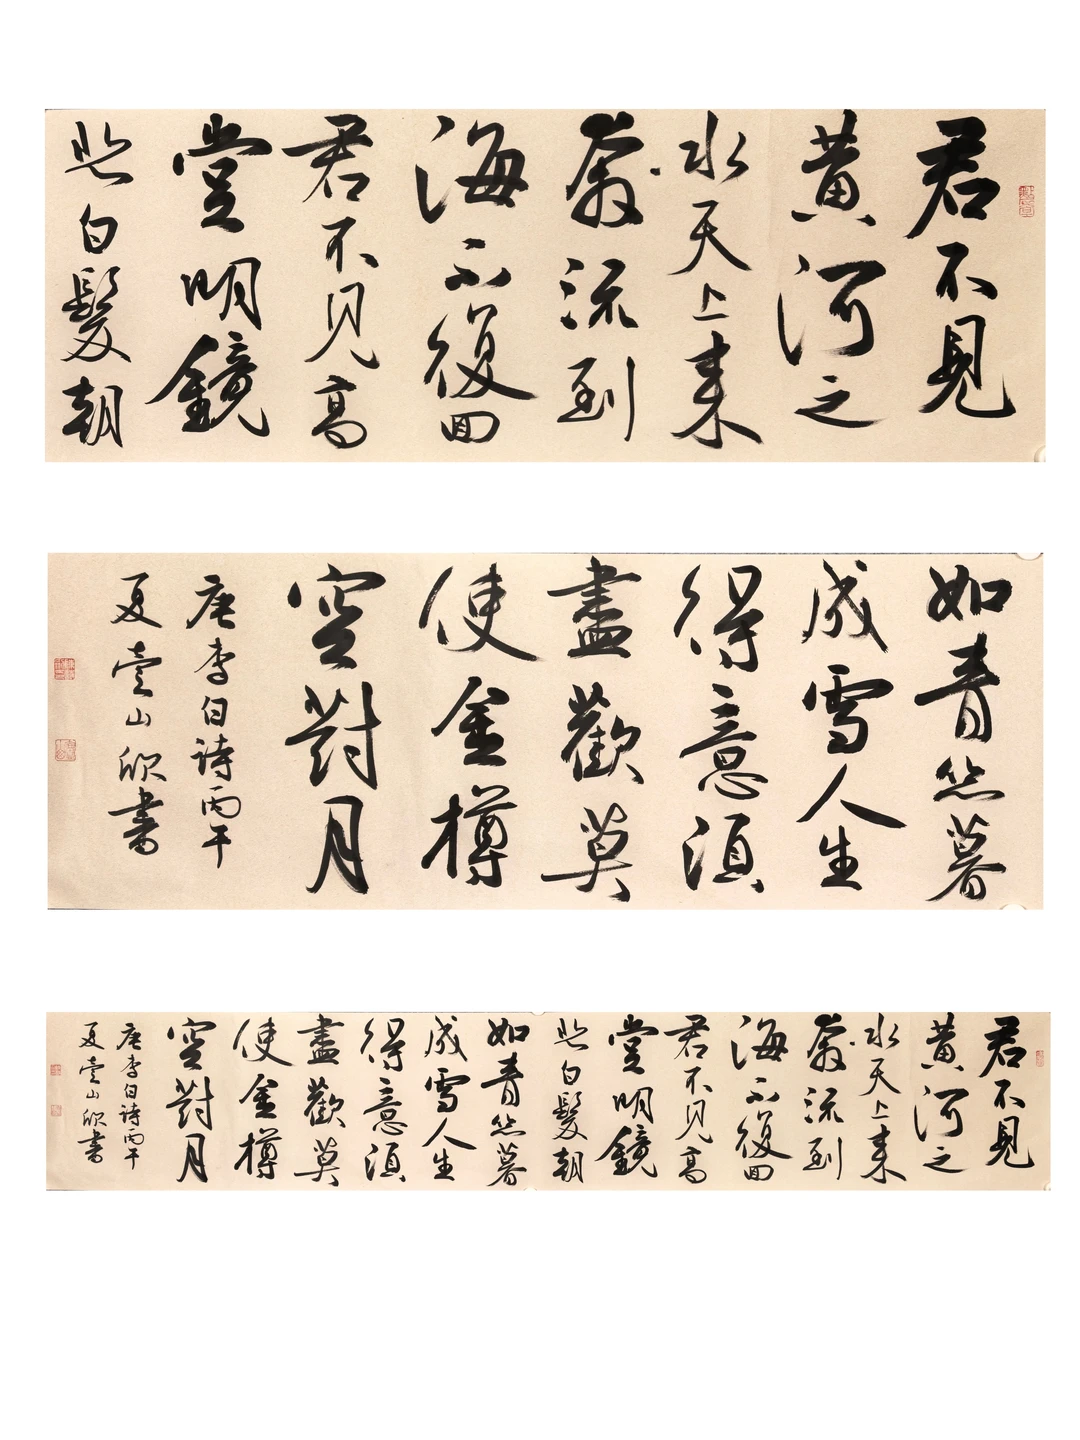 君不見
黄河之
水天上来
流到
海不復回
君不见高
堂明鏡
悲白髮朝
如青丝暮
成雪人生
得意須
盡歡莫
使金樽
空對月
唐李白诗丙午
夏山欣書
君不見
黄河之
水天上来
流到
海不復回
君不见高
堂明鏡
悲白髮朝
如青丝暮
成雪人生
得意須
盡歡莫
使金樽
空對月
唐李白诗丙午
夏山欣書